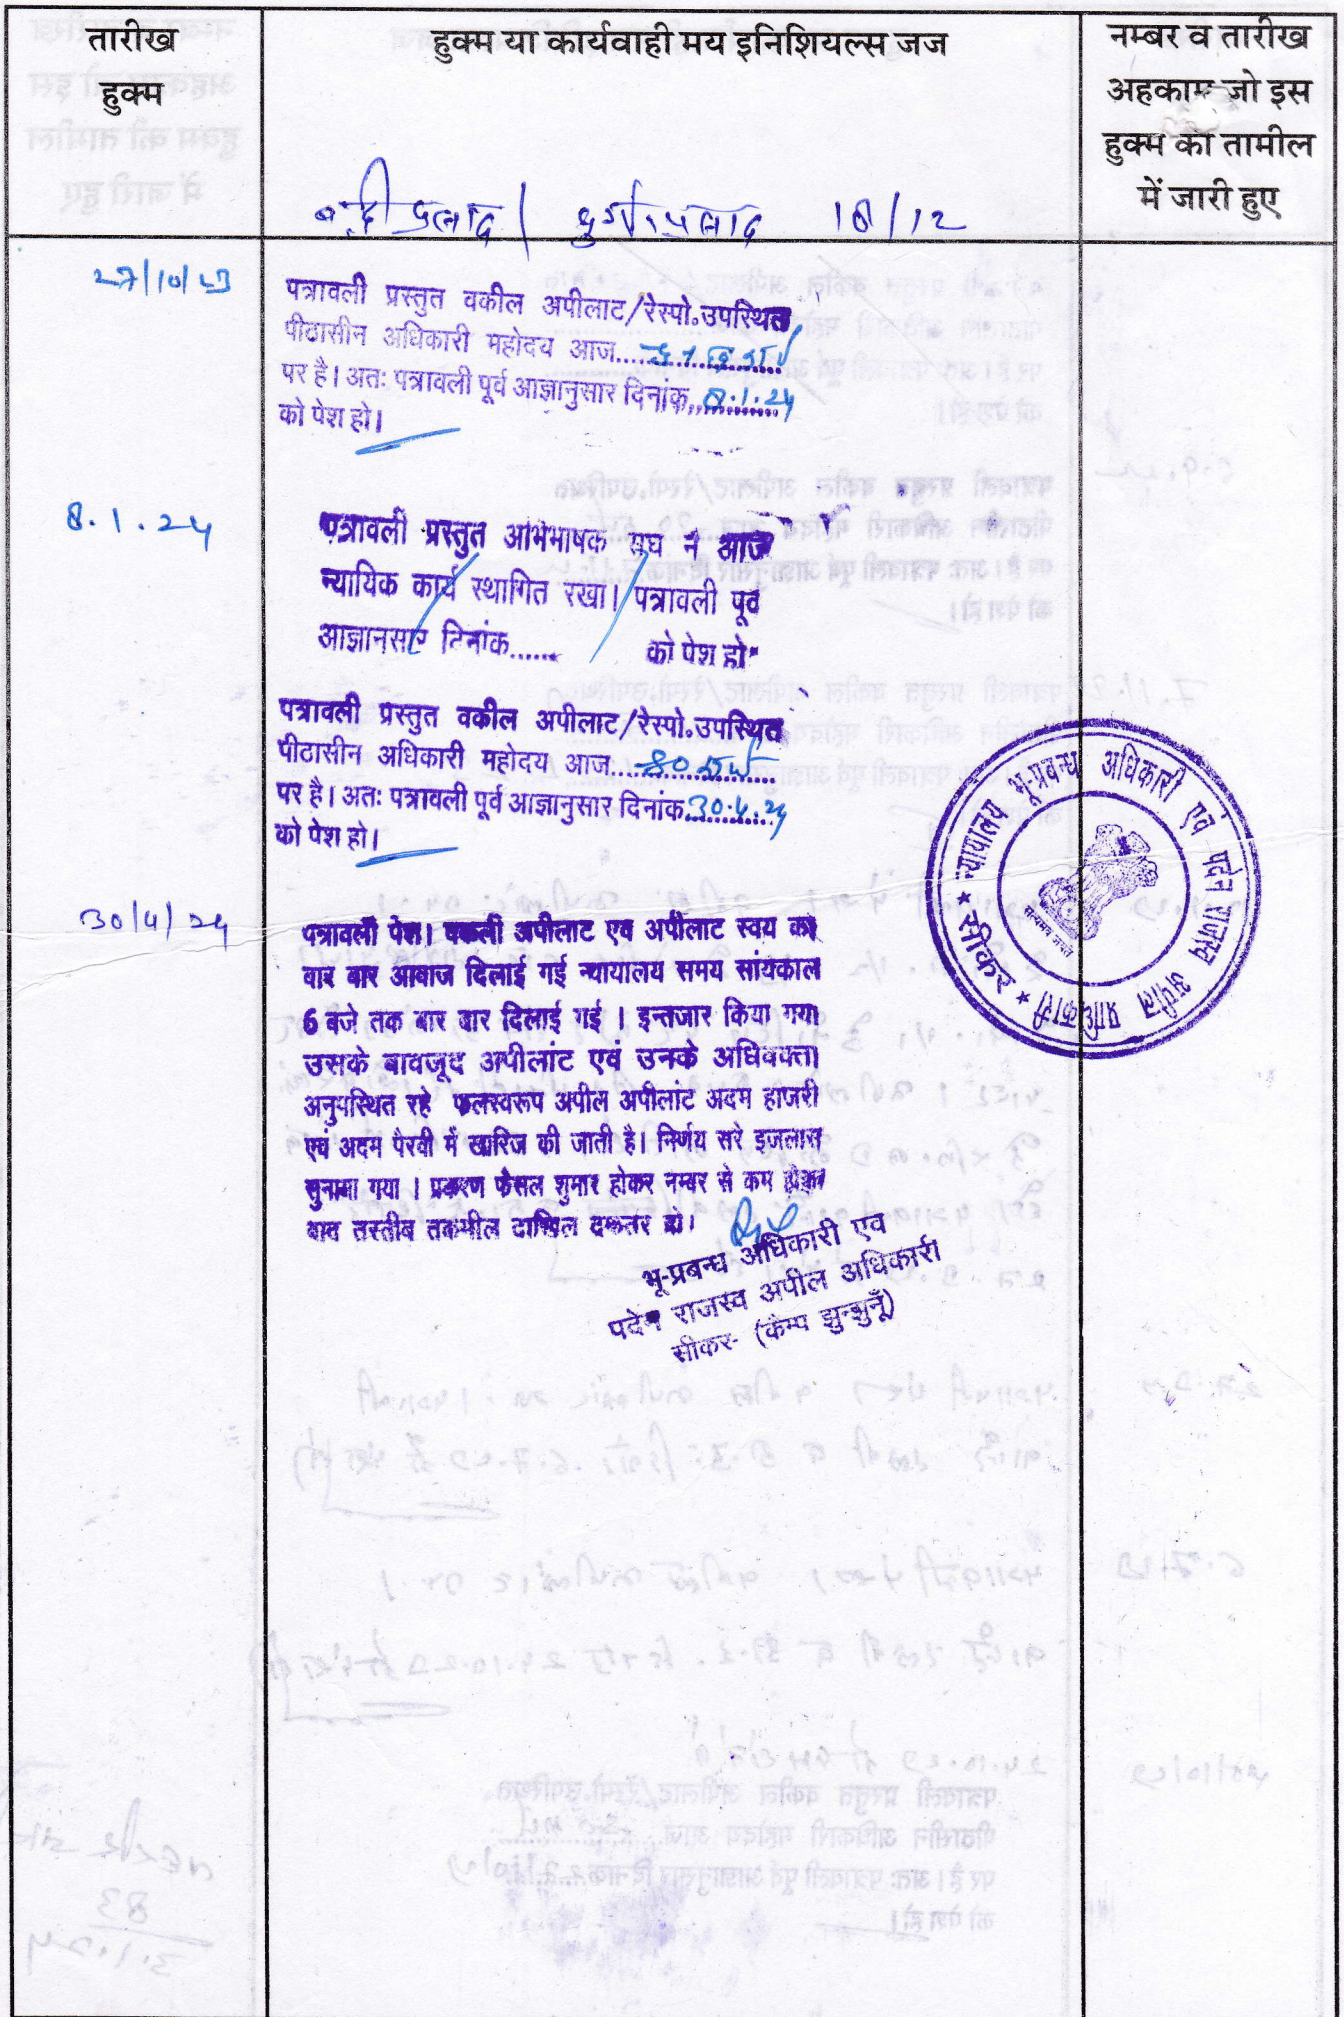 तारीख
हुक्म
हुक्म या कार्यवाही मय इनिशियल्स जज
नम्बर व तारीख
अहकाम जो इस
हुक्म की तामील
में जारी हुए
बद्रीप्रसाद / दुर्गाप्रसाद 18/12
27/10/23
पत्रावली प्रस्तुत वकील अपीलाट/रेस्पो.उपस्थित
पीठासीन अधिकारी महोदय आज......
पर है। अतः पत्रावली पूर्व आज्ञानुसार दिनांक 8.1.24
को पेश हो।
8.1.24
पत्रावली प्रस्तुत अभिभाषक संघ ने आज
न्यायिक कार्य स्थागित रखा। पत्रावली पूर्व
आज्ञानसार दिनांक...... को पेश हो
पत्रावली प्रस्तुत वकील अपीलाट/रेस्पो.उपस्थित
पीठासीन अधिकारी महोदय आज......
पर है। अतः पत्रावली पूर्व आज्ञानुसार दिनांक 30.4.24
को पेश हो।
न्यायालय भू-प्रबन्ध अधिकारी एवं पदेन राजस्व अपील प्राधिकारी
★ सीकर ★
सत्यमेव जयते
30/4/24
पत्रावली पेश। वकली अपीलाट एव अपीलाट स्वय को
बार बार आवाज दिलाई गई न्यायालय समय सांयकाल
6 बजे तक बार बार दिलाई गई । इन्तजार किया गया
उसके बावजूद अपीलांट एवं उनके अधिवक्ता
अनुपस्थित रहे फलस्वरूप अपील अपीलांट अदम हाजरी
एवं अदम पैरवी में खारिज की जाती है। निर्णय सरे इजलास
सुनाया गया । प्रकरण फैसल शुमार होकर नम्बर से कम होकर
बाद तरतीब तकमील दाखिल दफ्तर हो।
भू-प्रबन्ध अधिकारी एव
पदेन राजस्व अपील अधिकारी
सीकर- (कैम्प झुन्झुनूँ)